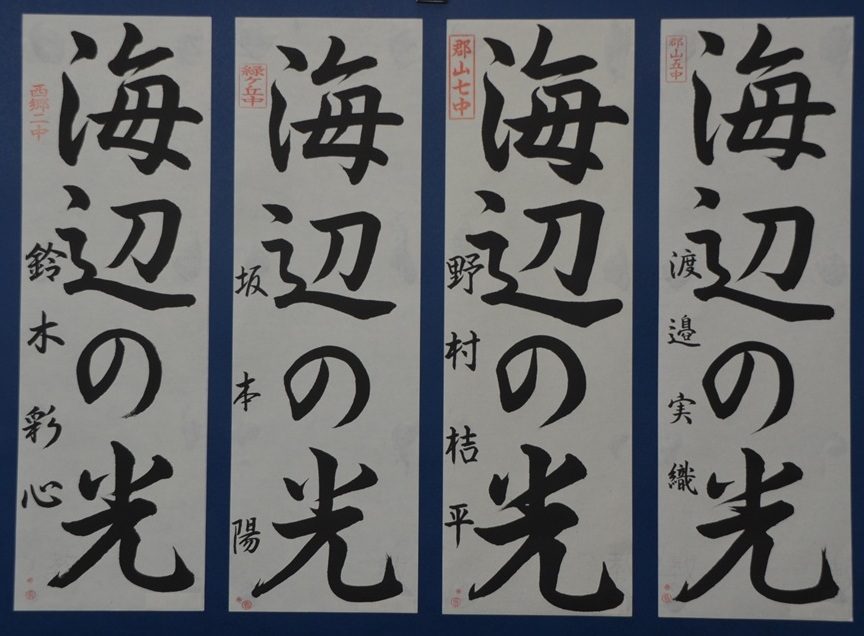 郡山五中
海辺の光
渡邉実織
郡山七中
海辺の光
野村桔平
緑ヶ丘中
海辺の光
坂本陽
西郷二中
海辺の光
鈴木彩心